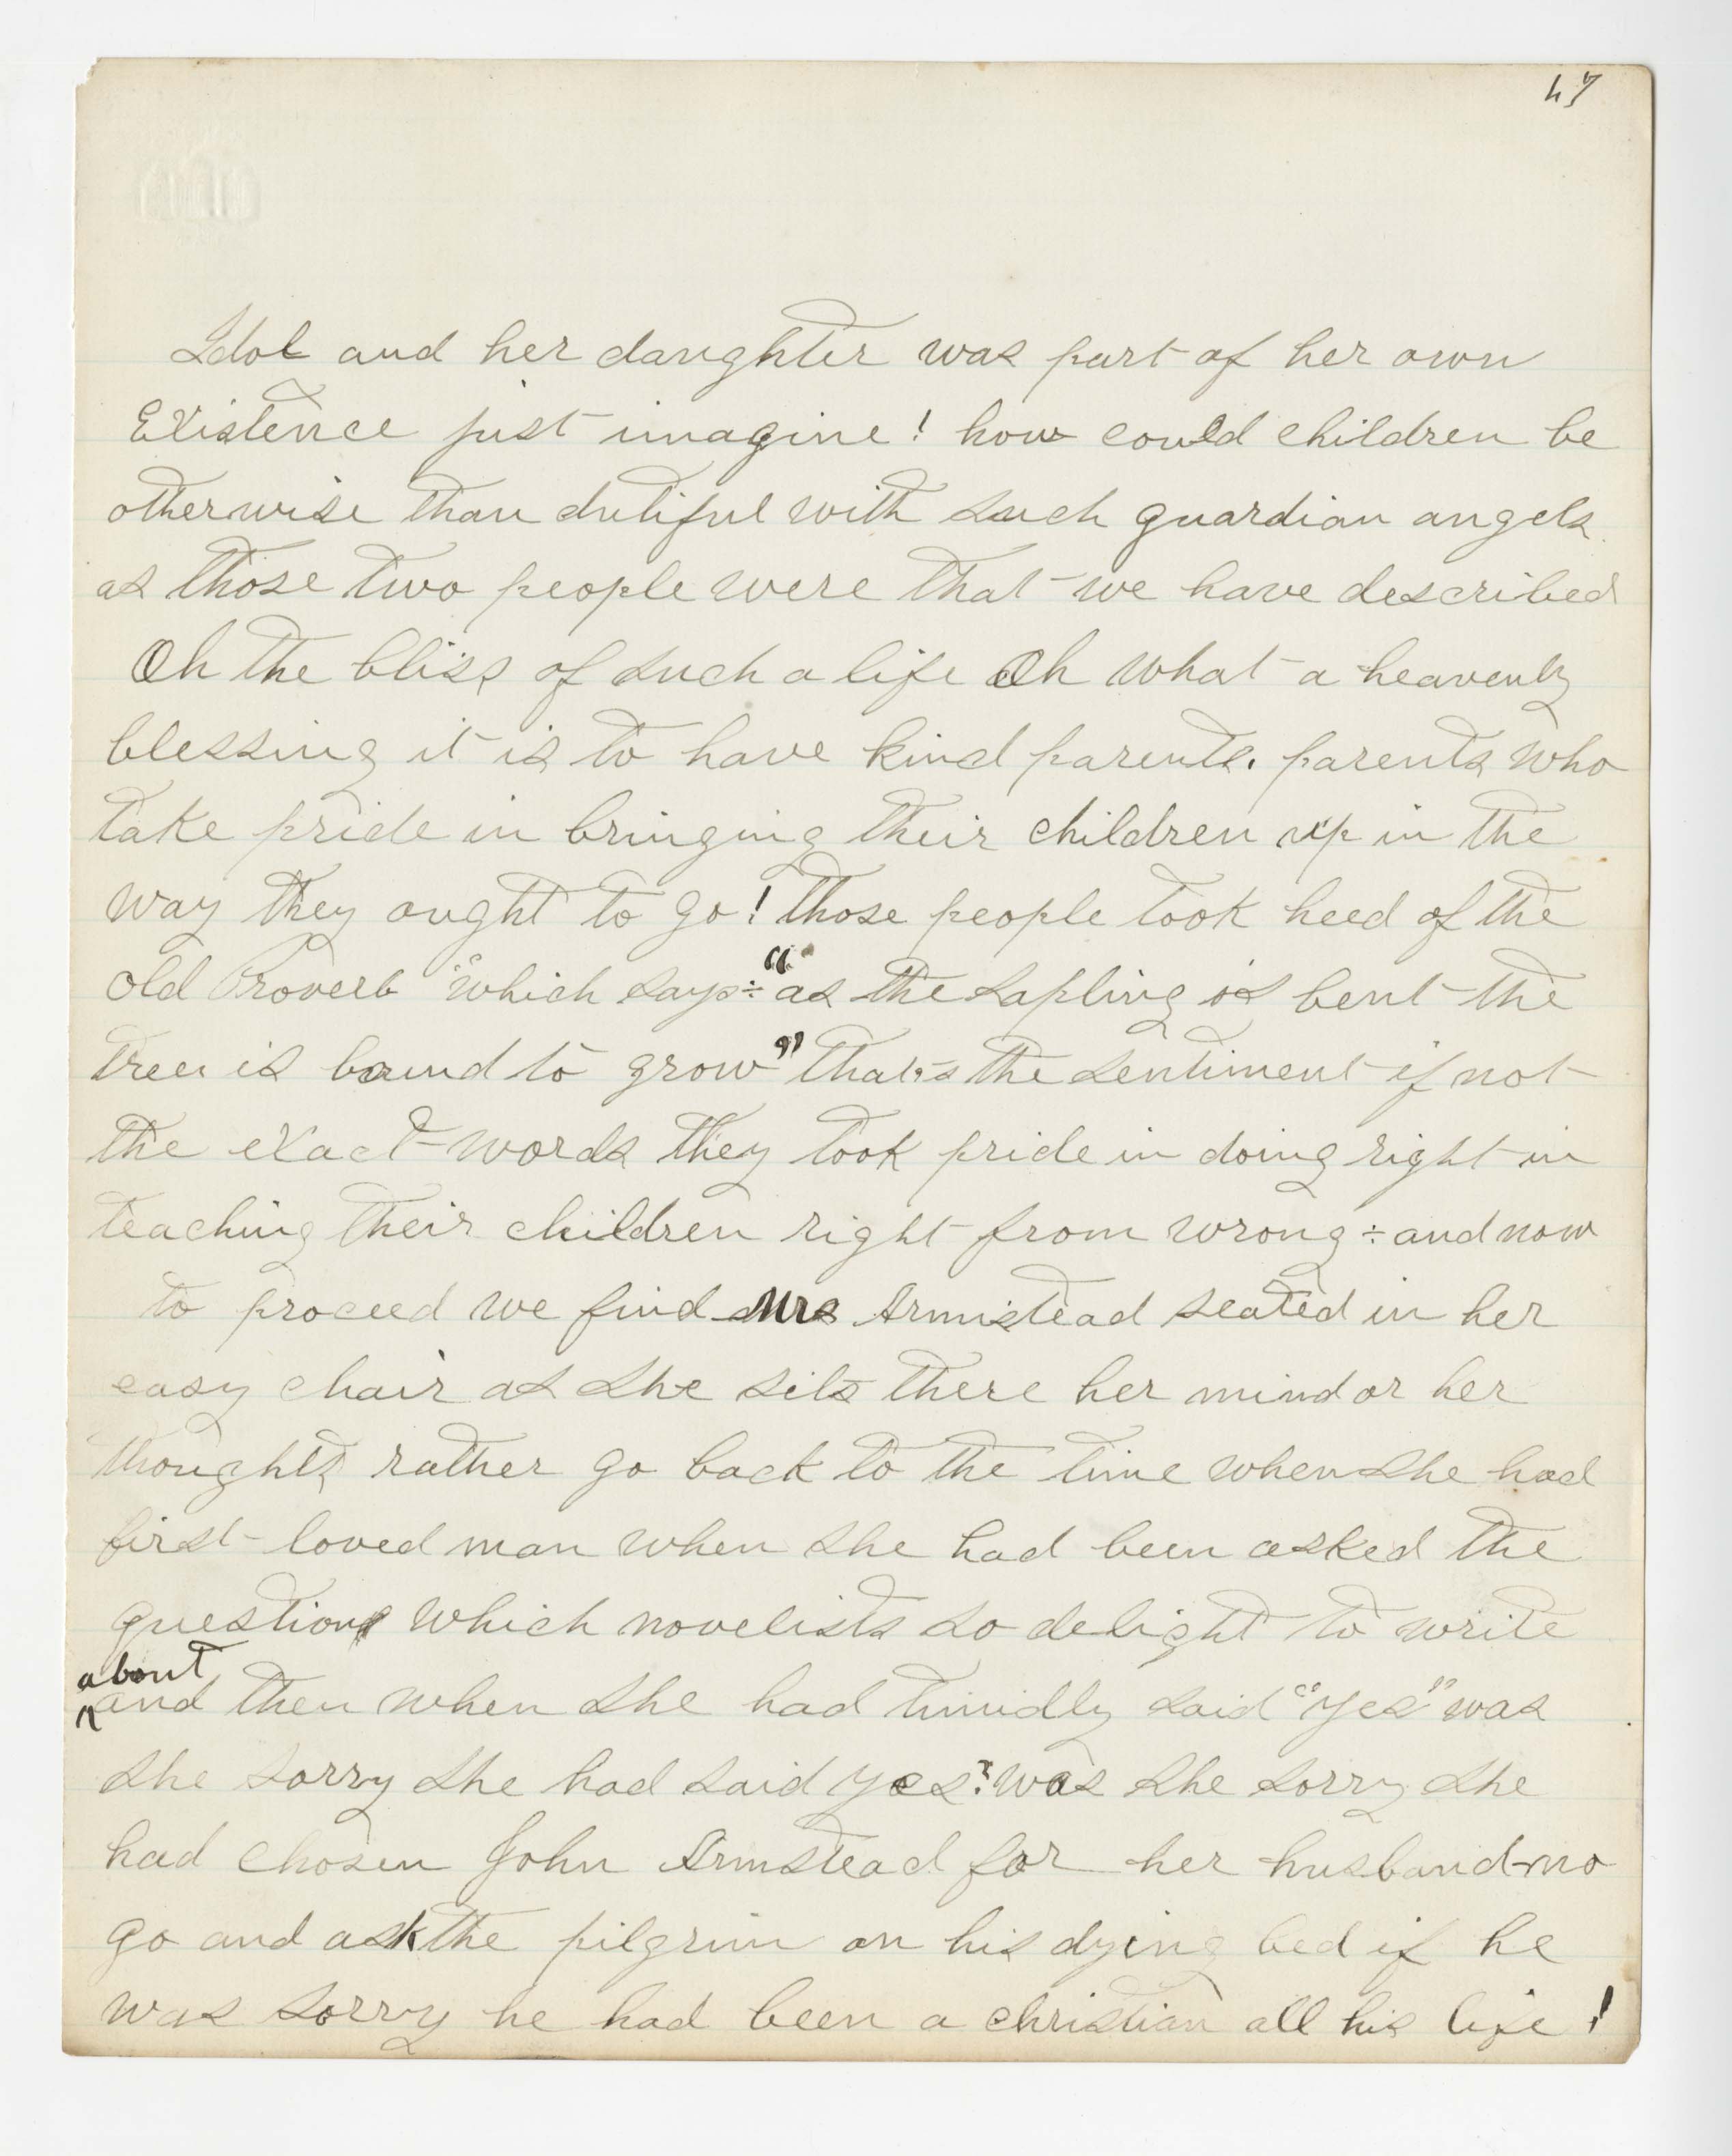 47
Idol and her daughter was part of her own
Existence just imagine! how could children be
otherwise than dutiful with such guardian angels
as those two people were that we have described
Oh the bliss of such a life Oh what a heavenly
blessing it is to have kind parents. parents who
take pride in bringing their children up in the
way they ought to go! those people took heed of the
old Proverb "which says÷ "as the sapling is bent the
tree is bound to grow" that's the sentiment if not
the exact words they took pride in doing right in
teaching their children right from wrong ÷ and now
to proceed we find Mrs Armistead seated in her
easy chair as she sits there her mind or her
thoughts rather go back to the time when she had
first loved man when she had been asked the
question which novelists so delight to write
about
and then when she had timidly said "yes" was
she sorry she had said yes? was she sorry she
had chosen John Armstead for her husband-no
go and ask the pilgrim on his dying bed if he
was sorry he had been a christian all his life!